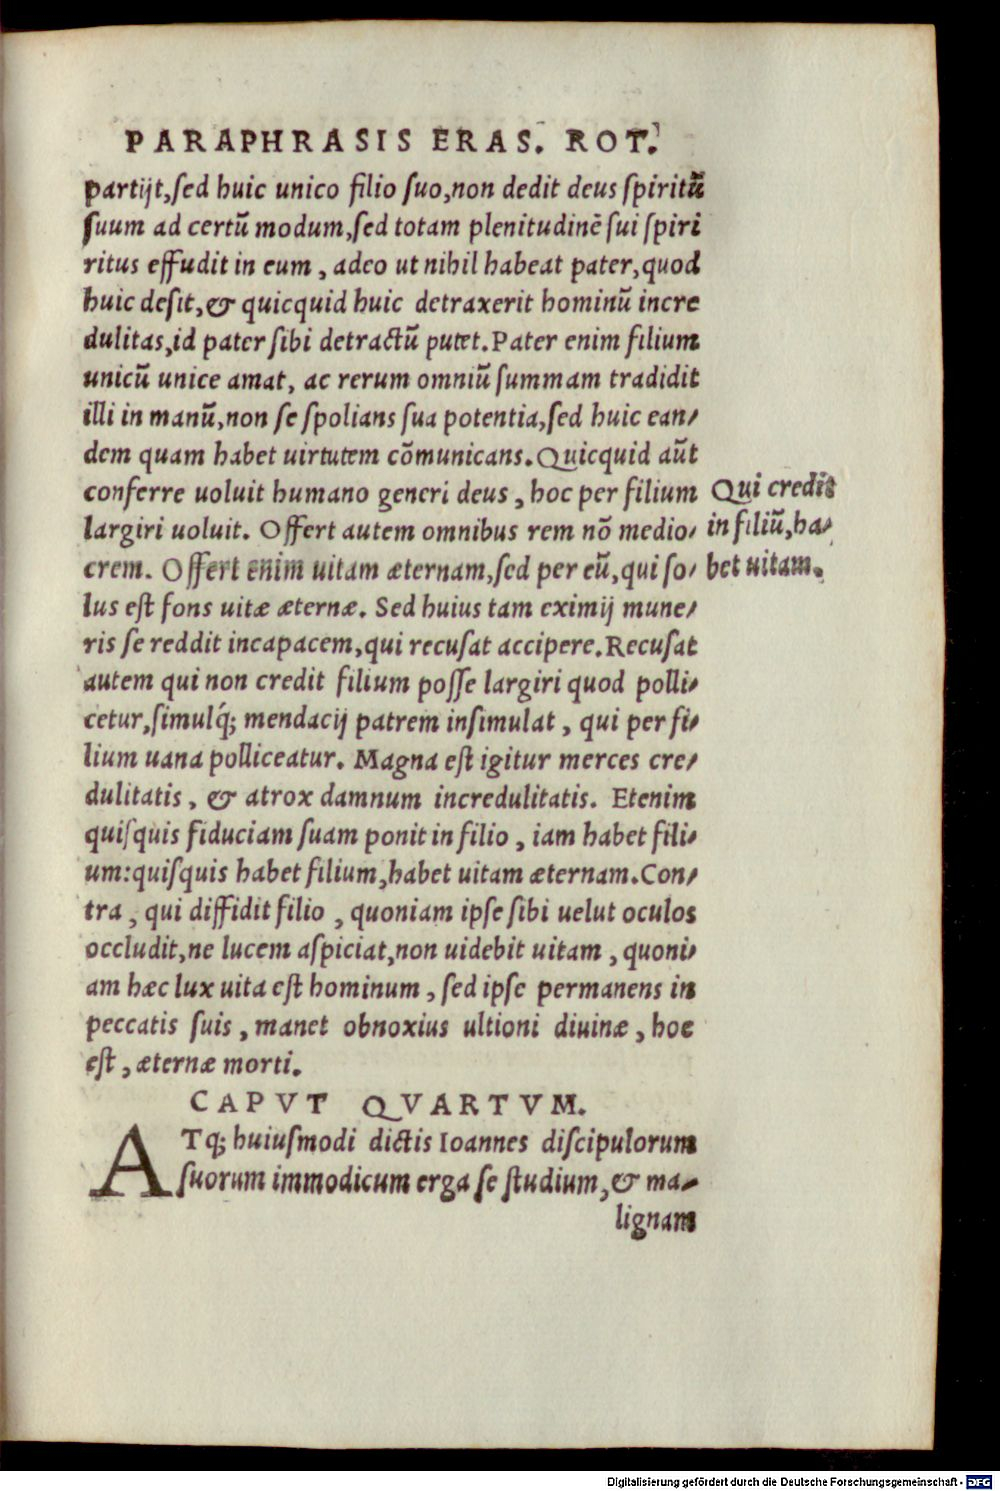 PARAPHRASIS ERAS. ROT.
partijt,sed huic unico filio suo,non dedit deus spiritū
suum ad certū modum,sed totam plenitudinē sui spiri
ritus effudit in eum, adeo ut nihil habeat pater,quod
huic desit,& quicquid huic detraxerit hominū incre
dulitas,id pater sibi detractū putet.Pater enim filium
unicū unice amat, ac rerum omniū summam tradidit
illi in manū,non se spolians sua potentia,sed huic ean/
dem quam habet uirtutem cōmunicans.Quicquid aūt
conferre uoluit humano generi deus, hoc per filium
largiri uoluit. Offert autem omnibus rem nō medio/
crem. Offert enim uitam æternam,sed per eū,qui so/
lus est fons uitæ æternæ. Sed huius tam eximij mune/
ris se reddit incapacem,qui recusat accipere.Recusat
autem qui non credit filium posse largiri quod polli/
cetur,simulq́; mendacij patrem insimulat, qui per fi/
lium uana polliceatur. Magna est igitur merces cre/
dulitatis, & atrox damnum incredulitatis. Etenim
quisquis fiduciam suam ponit in filio, iam habet fili/
um:quisquis habet filium,habet uitam æternam.Con/
tra, qui diffidit filio, quoniam ipse sibi uelut oculos
occludit,ne lucem aspiciat,non uidebit uitam, quoni/
am hæc lux uita est hominum, sed ipse permanens in
peccatis suis, manet obnoxius ultioni diuinæ, hoc
est, æternæ morti.
Qui credit
in filiū,ha/
bet uitam.
CAPVT QVARTVM.
ATq; huiusmodi dictis Ioannes discipulorum
suorum immodicum erga se studium,& ma/
lignam
Digitalisierung gefördert durch die Deutsche Forschungsgemeinschaft - DFG